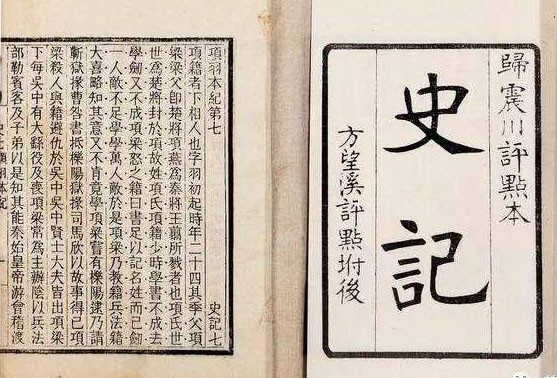 歸震川評點本
史記
方望溪評點坿後
項羽本紀第七 史記七
項籍者下相人也字羽初起時年二十四其季父項
梁梁父卽楚將項燕爲秦將王翦所戮者也項氏世
世爲楚將封於項故姓項氏項籍少時學書不成去
學劍又不成項梁怒之籍曰書足以記名姓而已劒
一人敵不足學學萬人敵於是項梁乃教籍兵法籍
大喜略知其意又不肯竟學項梁嘗有櫟陽逮乃請
蘄獄掾曹咎書抵櫟陽獄掾司馬欣以故事得已項
梁殺人與籍避仇於吳中吳中賢士大夫皆出項梁
下每吳中有大繇役及喪項梁常爲主辦陰以兵法
部勒賓客及子弟以是知其能秦始皇帝游會稽渡